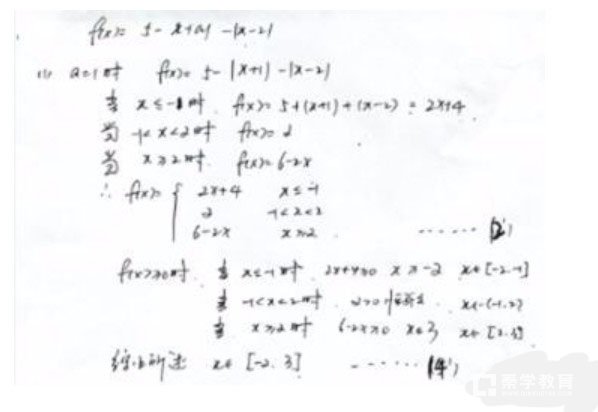 f(x)= 5-|x+a|-|x-2|
(1) a=1时 f(x)= 5-|x+1|-|x-2|
当 x≤-1时, f(x)= 5+(x+1)+(x-2) = 2x+4
当 -1<x<2时 f(x)=2
当 x≥2时. f(x)=6-2x
∴ f(x)= { 2x+4 x≤-1
2 -1<x<2
6-2x x≥2 ...... (2')
f(x)≥0时. 当 x≤-1时. 2x+4≥0 x≥-2 x∈[-2.-1]
当 -1<x<2时. 2>0 恒成立 x∈(-1,2)
当 x≥2时 6-2x≥0 x≤3 x∈[2.3]
综上所述 x∈[-2.3] ...... (4')
秦学教育